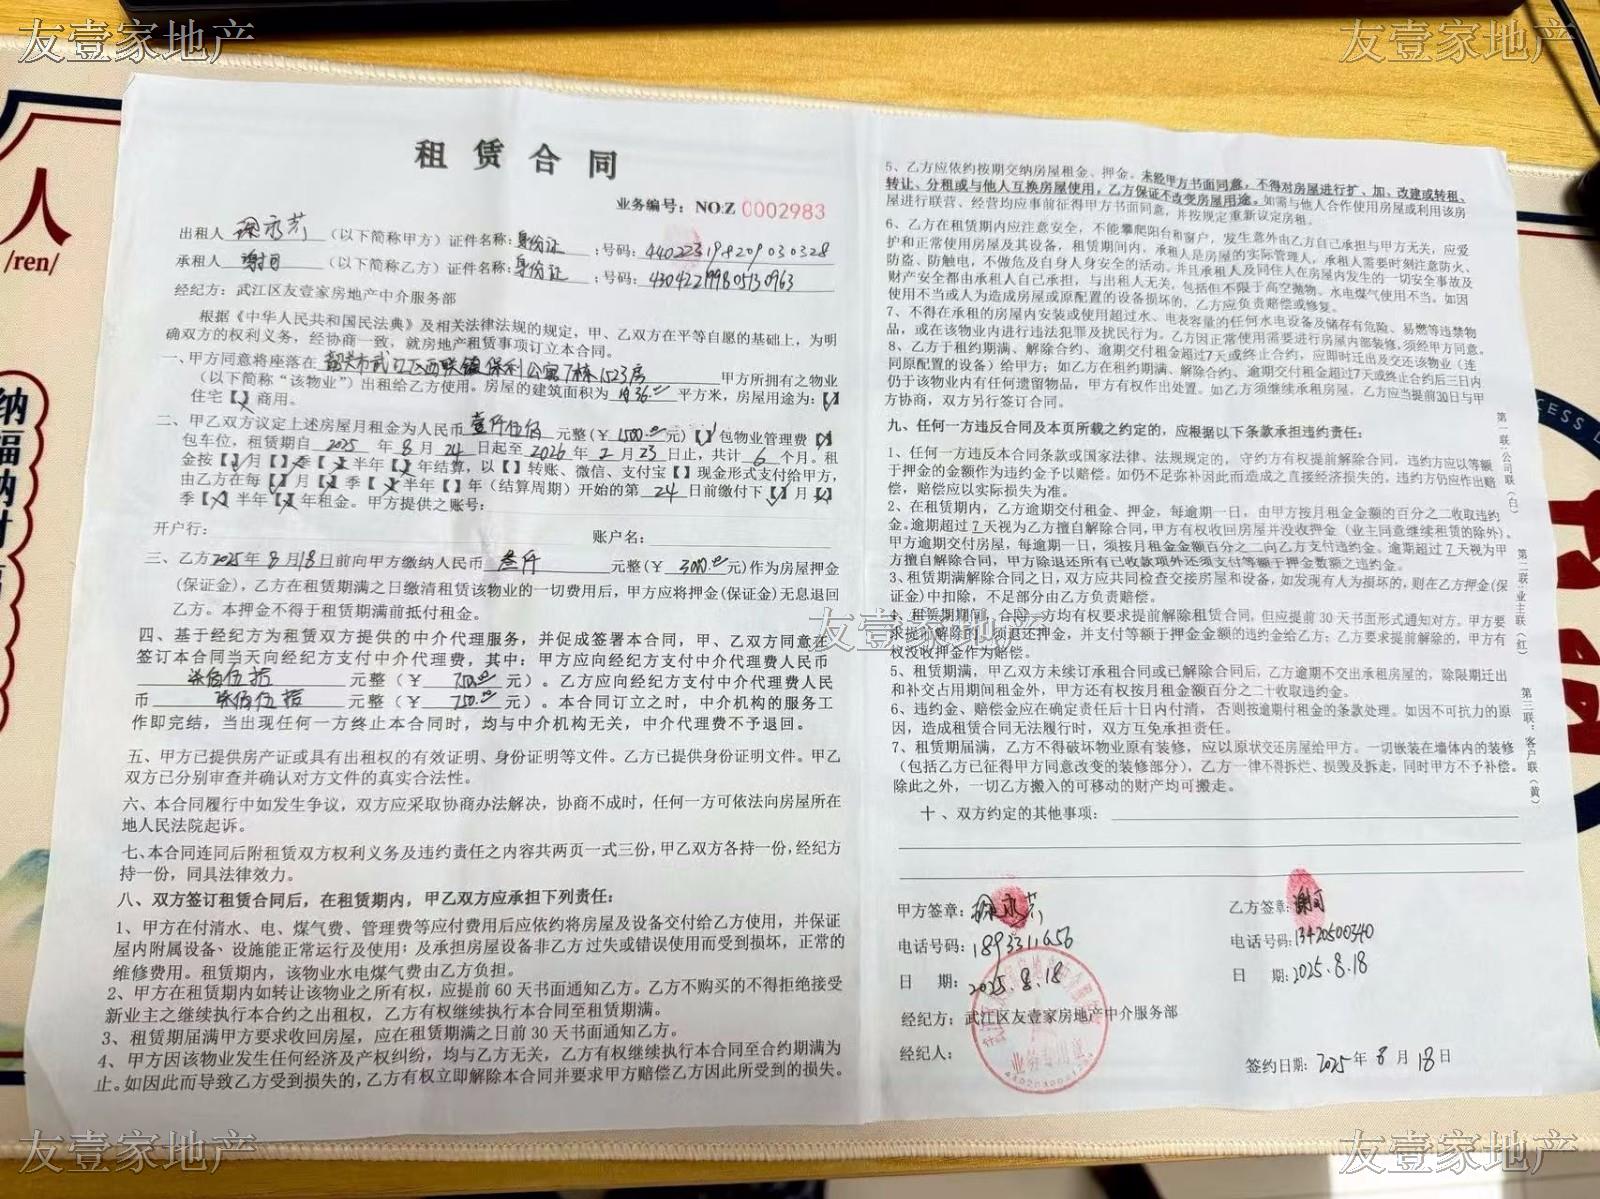 友壹家地产
友壹家地产
人
/ren/
租赁合同
业务编号：NO:Z 0002983
出租人 永芳 （以下简称甲方）证件名称：身份证 ；号码：440223198209030328
承租人 谢 （以下简称乙方）证件名称：身份证 ；号码：430422199805130963
经纪方：武江区友壹家房地产中介服务部
根据《中华人民共和国民法典》及相关法律法规的规定，甲、乙双方在平等自愿的基础上，为明
确双方的权利义务，经协商一致，就房地产租赁事项订立本合同。
一、甲方同意将座落在 韶关市武江区西联镇保利公寓7栋1523房 甲方所拥有之物业
（以下简称“该物业”）出租给乙方使用。房屋的建筑面积为 36.00 平方米，房屋用途为：【√】
住宅【×】商用。
二、甲乙双方议定上述房屋月租金为人民币 壹仟伍佰 元整（￥ 1500.00 元）【√】包物业管理费【】
包车位，租赁期自 2025 年 8 月 24 日起至 2026 年 2 月 23 日止，共计 6 个月。租
金按【√】月【×】季【×】半年【×】年结算，以【】转账、微信、支付宝【】现金形式支付给甲方，
由乙方在每【】月【×】季【×】半年【】年（结算周期）开始的第 24 日前缴付下【√】月【×】
季【×】半年【×】年租金。甲方提供之账号：
开户行： 账户名：
三、乙方2025年8月18日前向甲方缴纳人民币 叁仟 元整（￥ 3000.00 元）作为房屋押金
(保证金)，乙方在租赁期满之日缴清租赁该物业的一切费用后，甲方应将押金(保证金)无息退回
乙方。本押金不得于租赁期满前抵付租金。
四、基于经纪方为租赁双方提供的中介代理服务，并促成签署本合同，甲、乙双方同意在
签订本合同当天向经纪方支付中介代理费，其中：甲方应向经纪方支付中介代理费人民币
柒佰伍拾 元整（￥ 750.00 元）。乙方应向经纪方支付中介代理费人民
币 柒佰伍拾 元整（￥ 750.00 元）。本合同订立之时，中介机构的服务工
作即完结，当出现任何一方终止本合同时，均与中介机构无关，中介代理费不予退回。
五、甲方已提供房产证或具有出租权的有效证明、身份证明等文件。乙方已提供身份证明文件。甲乙
双方已分别审查并确认对方文件的真实合法性。
六、本合同履行中如发生争议，双方应采取协商办法解决，协商不成时，任何一方可依法向房屋所在
地人民法院起诉。
七、本合同连同后附租赁双方权利义务及违约责任之内容共两页一式三份，甲乙双方各持一份，经纪方
持一份，同具法律效力。
八、双方签订租赁合同后，在租赁期内，甲乙双方应承担下列责任：
1、甲方在付清水、电、煤气费、管理费等应付费用后应依约将房屋及设备交付给乙方使用，并保证
屋内附属设备、设施能正常运行及使用；及承担房屋设备非乙方过失或错误使用而受到损坏，正常的
维修费用。租赁期内，该物业水电煤气费由乙方负担。
2、甲方在租赁期内如转让该物业之所有权，应提前60天书面通知乙方。乙方不购买的不得拒绝接受
新业主之继续执行本合约之出租权，乙方有权继续执行本合同至租赁期满。
3、租赁期届满甲方要求收回房屋，应在租赁期满之日前30天书面通知乙方。
4、甲方因该物业发生任何经济及产权纠纷，均与乙方无关，乙方有权继续执行本合同至合约期满为
止。如因此而导致乙方受到损失的，乙方有权立即解除本合同并要求甲方赔偿乙方因此所受到的损失。
5、乙方应依约按期交纳房屋租金、押金。未经甲方书面同意，不得对房屋进行扩、加、改建或转租、
转让、分租或与他人互换房屋使用，乙方保证不改变房屋用途。如需与他人合作使用房屋或利用该房
屋进行联营、经营均应事前征得甲方书面同意，并按规定重新议定房租。
6、乙方在租赁期内应注意安全，不能攀爬阳台和窗户，发生意外由乙方自己承担与甲方无关，应爱
护和正常使用房屋及其设备，租赁期间内，承租人是房屋的实际管理人，承租人需要时刻注意防火、
防盗、防触电，不做危及自身人身安全的活动。并且承租人及同住人在房屋内发生的一切安全事故及
财产安全都由承租人自己承担，与出租人无关，包括但不限于高空抛物、水电煤气使用不当。如因
使用不当或人为造成房屋或原配置的设备损坏的，乙方应负责赔偿或修复。
7、不得在承租的房屋内安装或使用超过水、电表容量的任何水电设备及储存有危险、易燃等违禁物
品，或在该物业内进行违法犯罪及扰民行为。乙方因正常使用需要进行房屋内部装修，须经甲方同意。
8、乙方于租约期满、解除合约、逾期交付租金超过7天或终止合约，应即时迁出及交还该物业（连
同原配置的设备）给甲方；如乙方在租约期满、解除合约、逾期交付租金超过7天或终止合约后三日内
仍于该物业内有任何遗留物品，甲方有权作出处置。如乙方须继续承租房屋，乙方应当提前30日与甲
方协商，双方另行签订合同。
九、任何一方违反合同及本页所载之约定的，应根据以下条款承担违约责任：
1、任何一方违反本合同条款或国家法律、法规规定的，守约方有权提前解除合同，违约方应以等额
于押金的金额作为违约金予以赔偿。如仍不足弥补因此而造成之直接经济损失的，违约方仍应作出赔
偿，赔偿应以实际损失为准。
2、在租赁期内，乙方逾期交付租金、押金，每逾期一日，由甲方按月租金金额的百分之二收取违约
金。逾期超过7天视为乙方擅自解除合同，甲方有权收回房屋并没收押金（业主同意继续租赁的除外）。
甲方逾期交付房屋，每逾期一日，须按月租金金额百分之二向乙方支付违约金。逾期超过7天视为甲
方擅自解除合同，甲方除退还所有已收款项外还须支付等额于押金数额之违约金。
3、租赁期满解除合同之日，双方应共同检查交接房屋和设备，如发现有人为损坏的，则在乙方押金(保
证金)中扣除，不足部分由乙方负责赔偿。
4、租赁期期间，合同一方均有权要求提前解除租赁合同，但应提前30天书面形式通知对方。甲方要
求提前解除的，须退还押金，并支付等额于押金金额的违约金给乙方；乙方要求提前解除的，甲方有
权没收押金作为赔偿。
5、租赁期满，甲乙双方未续订承租合同或已解除合同后，乙方逾期不交出承租房屋的，除限期迁出
和补交占用期间租金外，甲方还有权按月租金额百分之二十收取违约金。
6、违约金、赔偿金应在确定责任后十日内付清，否则按逾期付租金的条款处理。如因不可抗力的原
因，造成租赁合同无法履行时，双方互免承担责任。
7、租赁期届满，乙方不得破坏物业原有装修，应以原状交还房屋给甲方。一切嵌装在墙体内的装修
（包括乙方已征得甲方同意改变的装修部分），乙方一律不得拆烂、损毁及拆走，同时甲方不予补偿。
除此之外，一切乙方搬入的可移动的财产均可搬走。
十、双方约定的其他事项：
甲方签章： 永芳
电话号码：18933111656
日 期：2025.8.18
经纪方：武江区友壹家房地产中介服务部
经纪人：
乙方签章：谢
电话号码：13420500340
日 期：2025.8.18
签约日期：2025年8月18日
业务专用章
第一联：公司联（白）
第二联：业主联（红）
第三联：客户联（黄）
友壹家地产
纳福纳财
CESS
友壹家地产
友壹家地产